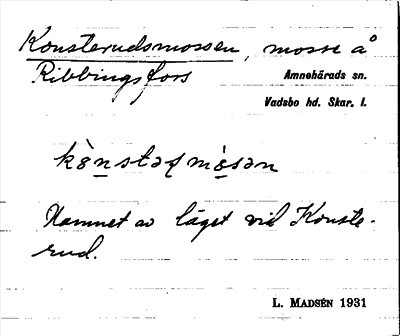 Konsterudsmossen, mosse å
Ribbingsfors
Amnehärads sn.
Vadsbo hd. Skar. l.
Namnet av läget vid Konste-
rud.
L. MADSÉN 1931